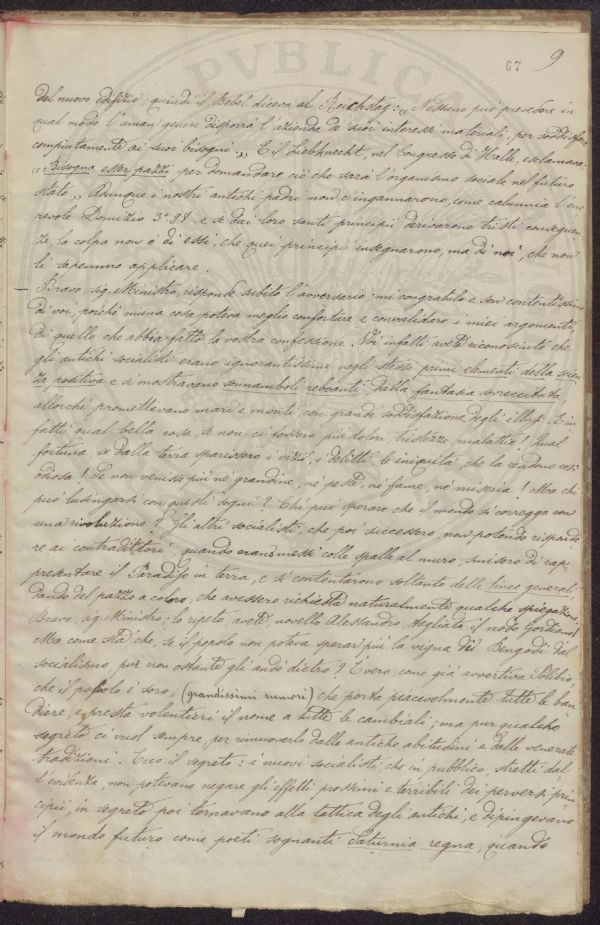 PVBLICA
67 9
del nuovo edifizio; quindi il Bebel diceva al Reichstag: „ Nessuno può prevedere in
qual modo l'uman genere disporrà l'azienda de' suoi interessi materiali, per soddisfare
compiutamente ai suoi bisogni „. E il Liebknecht, nel Congresso di Halle, esclamava:
„ Bisogna esser pazzi per domandare ciò che sarà l'organismo sociale nel futuro
Stato „. Adunque i nostri antichi padri non s'ingannarono, come calunnia l'ono-
revole Domizio 3° e se dai loro santi principii derivarono tristi conseguen-
ze, la colpa non è di essi, che quei principii insegnarono, ma di noi, che non
li sapemmo applicare.
— Bravo, sig. Ministro, risponde subito l'avversario: mi congratulo e son contentissimo
di voi, poichè niuna cosa poteva meglio confortare e convalidare i miei argomenti,
di quello che abbia fatto la vostra confessione. Voi infatti avete riconosciuto che
gli antichi socialisti erano ignorantissimi negli stessi primi elementi della scien-
za positiva e si mostravano sonnamboli reboanti dalla fantasia sovreccitata,
allorchè promettevano mari e monti, con grande soddisfazione degli illusi. E in-
fatti qual bella cosa, se non ci fossero più dolori, tristezze, malattie! Qual
fortuna, se dalla terra sparissero i vizii, i delitti, le iniquità, che la rendono così
odiosa! Se non venisse più nè grandine, nè peste, nè fame, nè miseria! Ma chi
può lusingarsi con questi sogni? Chi può sperare che il mondo si corregga con
una rivoluzione? Gli altri socialisti, che poi successero, non potendo risponde-
re ai contradittori, quando eran messi colle spalle al muro, smisero di rap-
presentare il Paradiso in terra, e si contentarono soltanto delle linee generali
dando del pazzo a coloro, che avessero richiesta naturalmente qualche spiegazione.
Bravo, sig. Ministro; lo ripeto, avete, novello Alessandro, tagliato il nodo Gordiano!
Ma come sta che, se il popolo non poteva sperar più la vigna del Bengodi dal
socialismo pur non ostante gli andò dietro? È vero, come già avvertiva Polibio,
che il popolo è soro, (grandissimi rumori) che porta piacevolmente tutte le ban-
diere, e presta volentieri il nome a tutte le cambiali; ma pur qualche
segreto ci vuol sempre, per rimuoverlo dalle antiche abitudini e dalle venerate
tradizioni. Ecco il segreto: i nuovi socialisti, che in pubblico, stretti dal-
l'evidenza, non potevano negare gli effetti prossimi e terribili dei perversi prin-
cipii, in segreto poi tornavano alla tattica degli antichi, e dipingevano
il mondo futuro come poeti sognanti Saturnia regna, quando